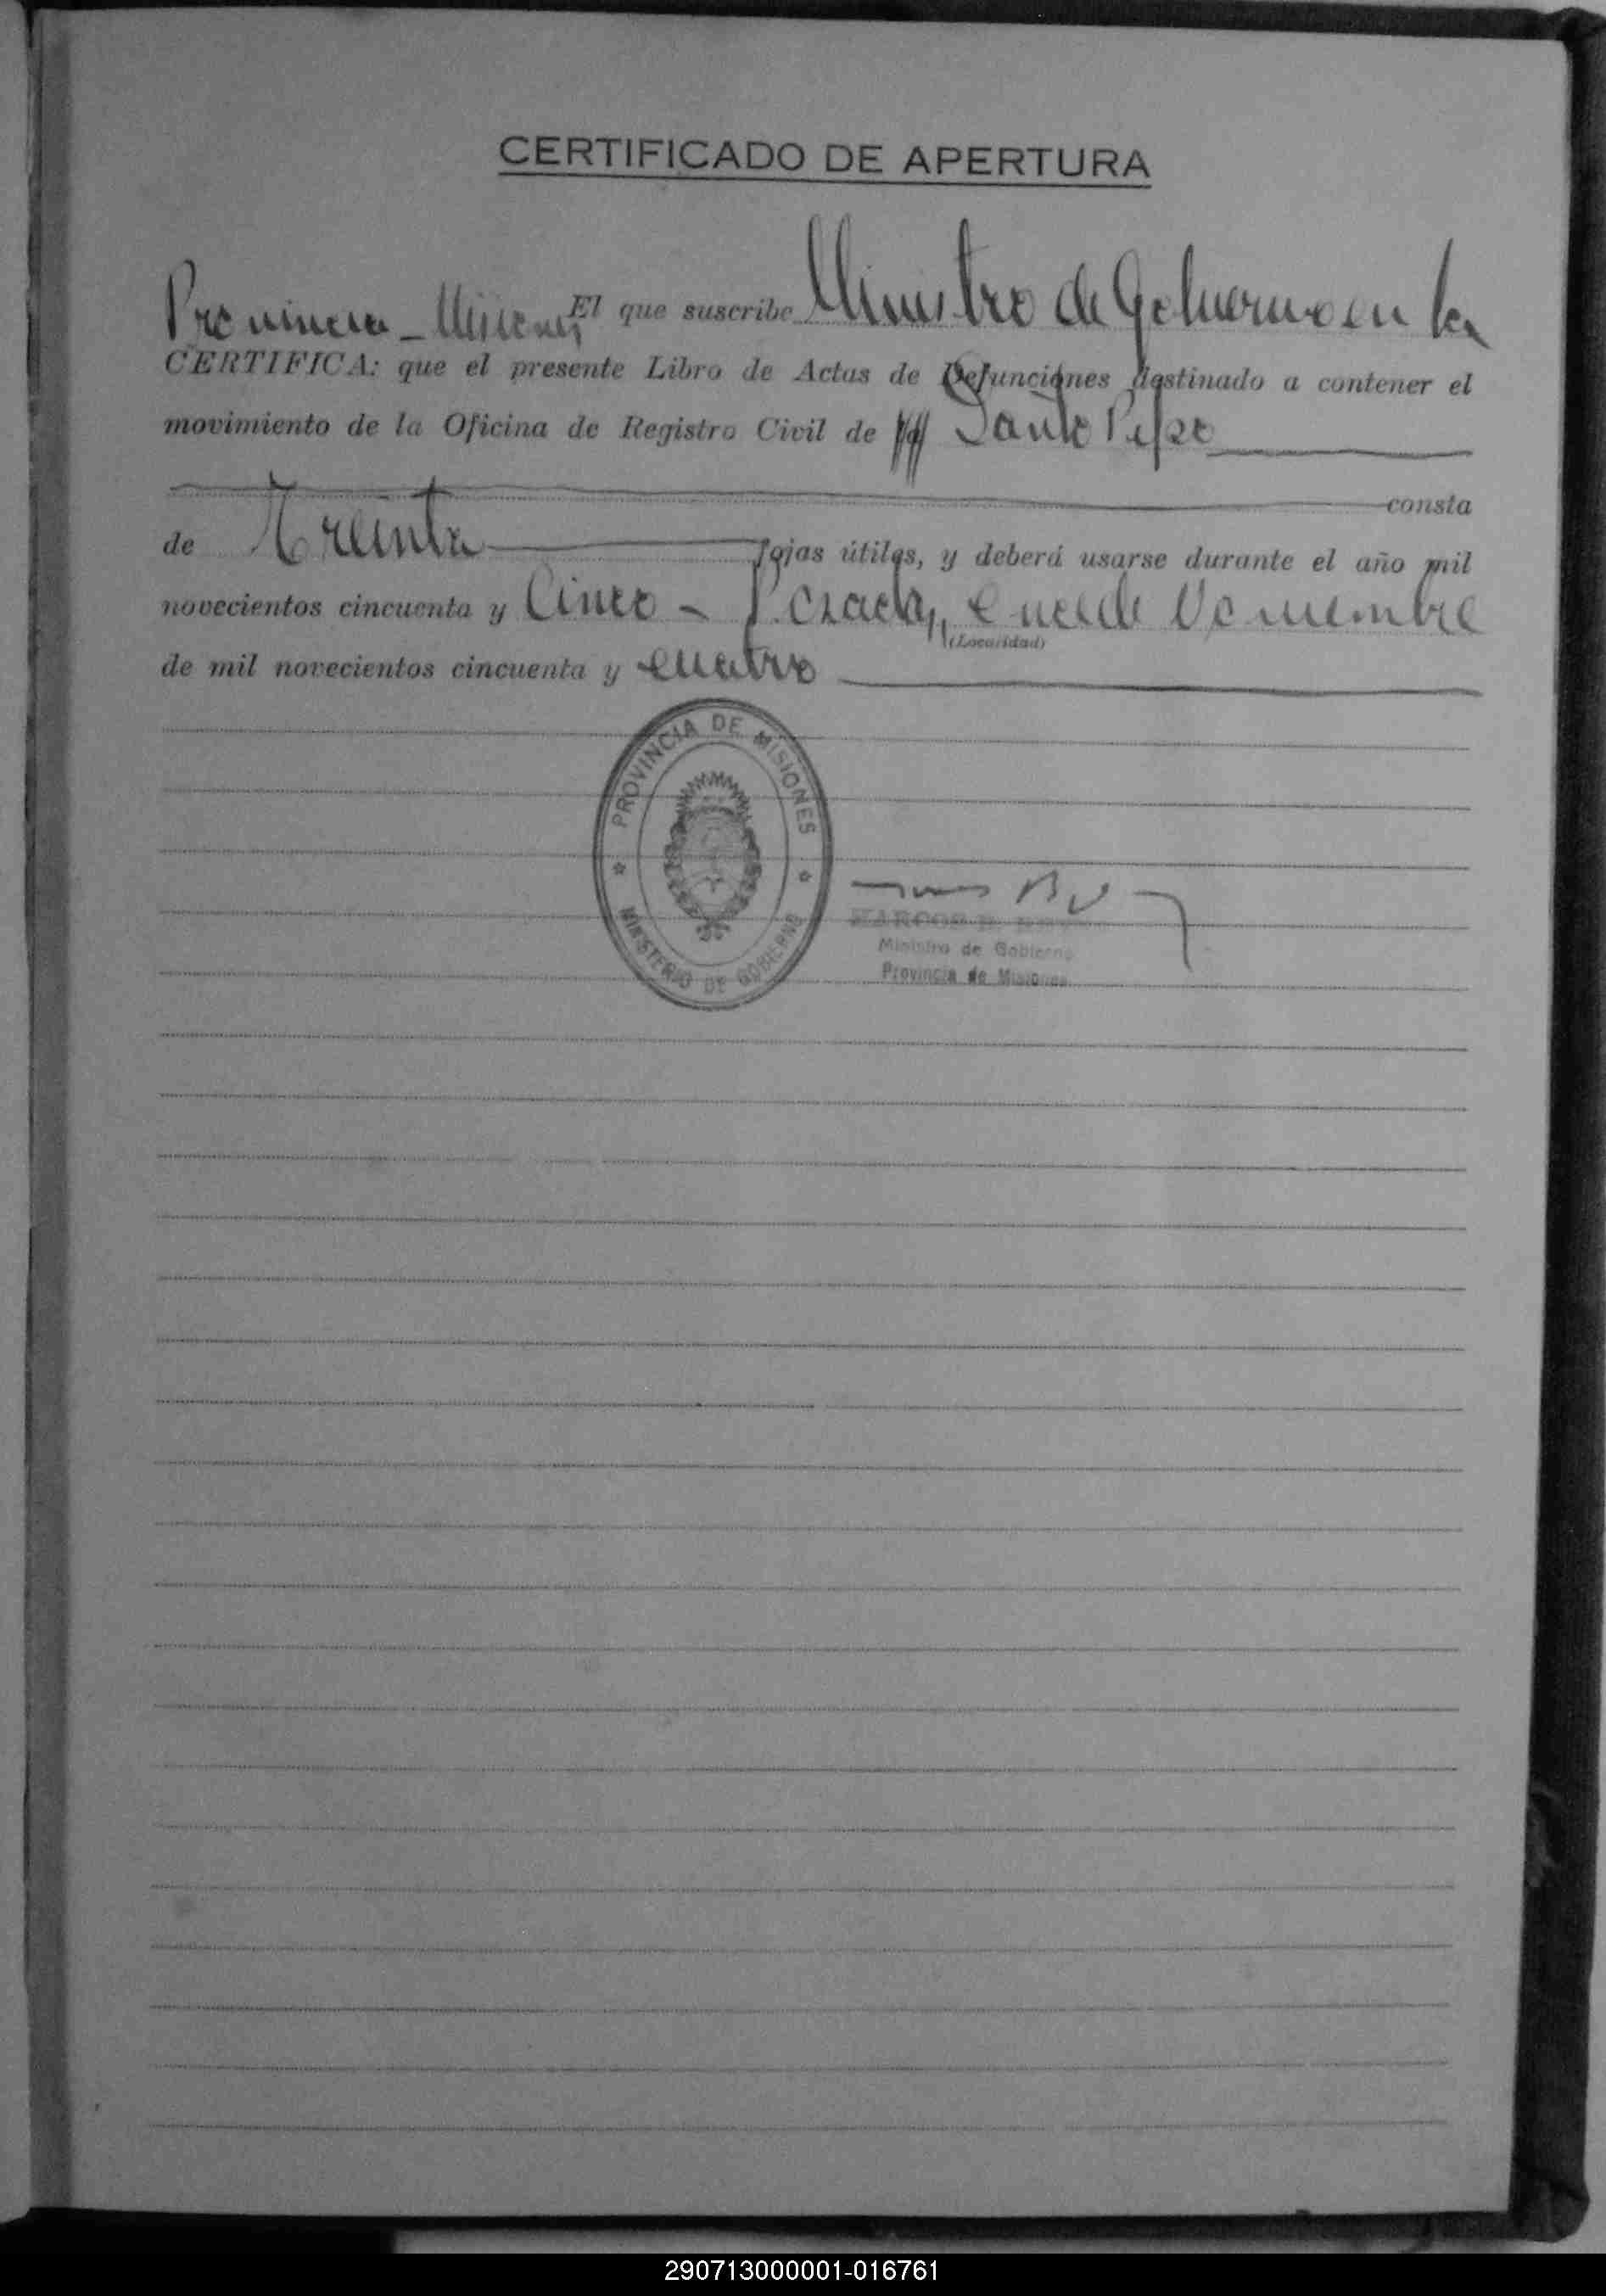 CERTIFICADO DE APERTURA
El que suscribe Ministro de Gobierno en la
Provincia - Misiones
CERTIFICA: que el presente Libro de Actas de Defunciones destinado a contener el
movimiento de la Oficina de Registro Civil de Santo Pipo
consta
de Treinta fojas útiles, y deberá usarse durante el año mil
novecientos cincuenta y Cinco - Posadas, once de Noviembre
(Localidad)
de mil novecientos cincuenta y cuatro
PROVINCIA DE MISIONES
MINISTERIO DE GOBIERNO
MARCOS
Ministro de Gobierno
Provincia de Misiones
290713000001-016761